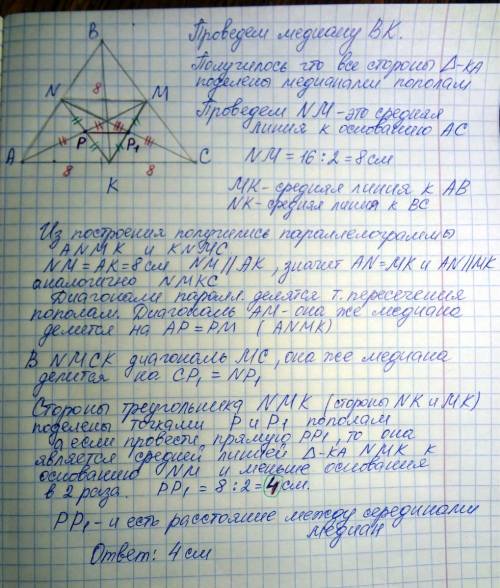 Проведем медиану ВК.
Получилось что все стороны Δ-ка
поделены медианами пополам
Проведем NM-это средняя
линия к основанию АС
NM = 16 : 2 = 8 см
MK- средняя линия к АВ
NK- средняя линия к ВС
B
N
8
M
P
P₁
A
8
K
8
C
Из построения получились параллелограммы
ANMK и KNMC
NM = AK = 8 см NM || AK, значит AN = MK и AN || MK
аналогично NMKC
Диагонали паралл. делятся т. пересечения
пополам. Диагональ АМ- она же медиана
делится на AP = PM (ANMK)
В NMCK диагональ MC, она же медиана
делится на CP₁ = NP₁
Стороны треугольника NMK (стороны NK и MK)
поделены точками P и P₁ пополам
а если провести прямую PP₁, то она
является средней линией Δ-ка NMK к
основанию NM и меньше основания
в 2 раза. PP₁ = 8 : 2 = 4 см.
PP₁ - и есть расстояние между серединами
медиан
Ответ: 4 см